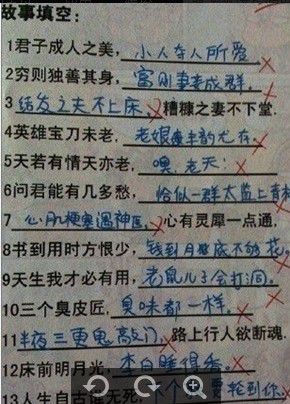 故事填空：
1君子成人之美，小人夺人所爱
2穷则独善其身，富则妻妾成群。
3结发之夫不上床，糟糠之妻不下堂.
4英雄宝刀未老，老娘风韵尤存。
5天若有情天亦老，噢，老天!
6问君能有几多愁，恰似一群太监上青
7心肌梗塞遇神医，心有灵犀一点通，
8书到用时方恨少，钱到月底不够花。
9天生我才必有用，老鼠儿子会打洞。
10三个臭皮匠，臭味都一样。
11半夜三更鬼敲门，路上行人欲断魂.
12床前明月光，李白睡得香。
13人生自古谁无死，下个 轮到你